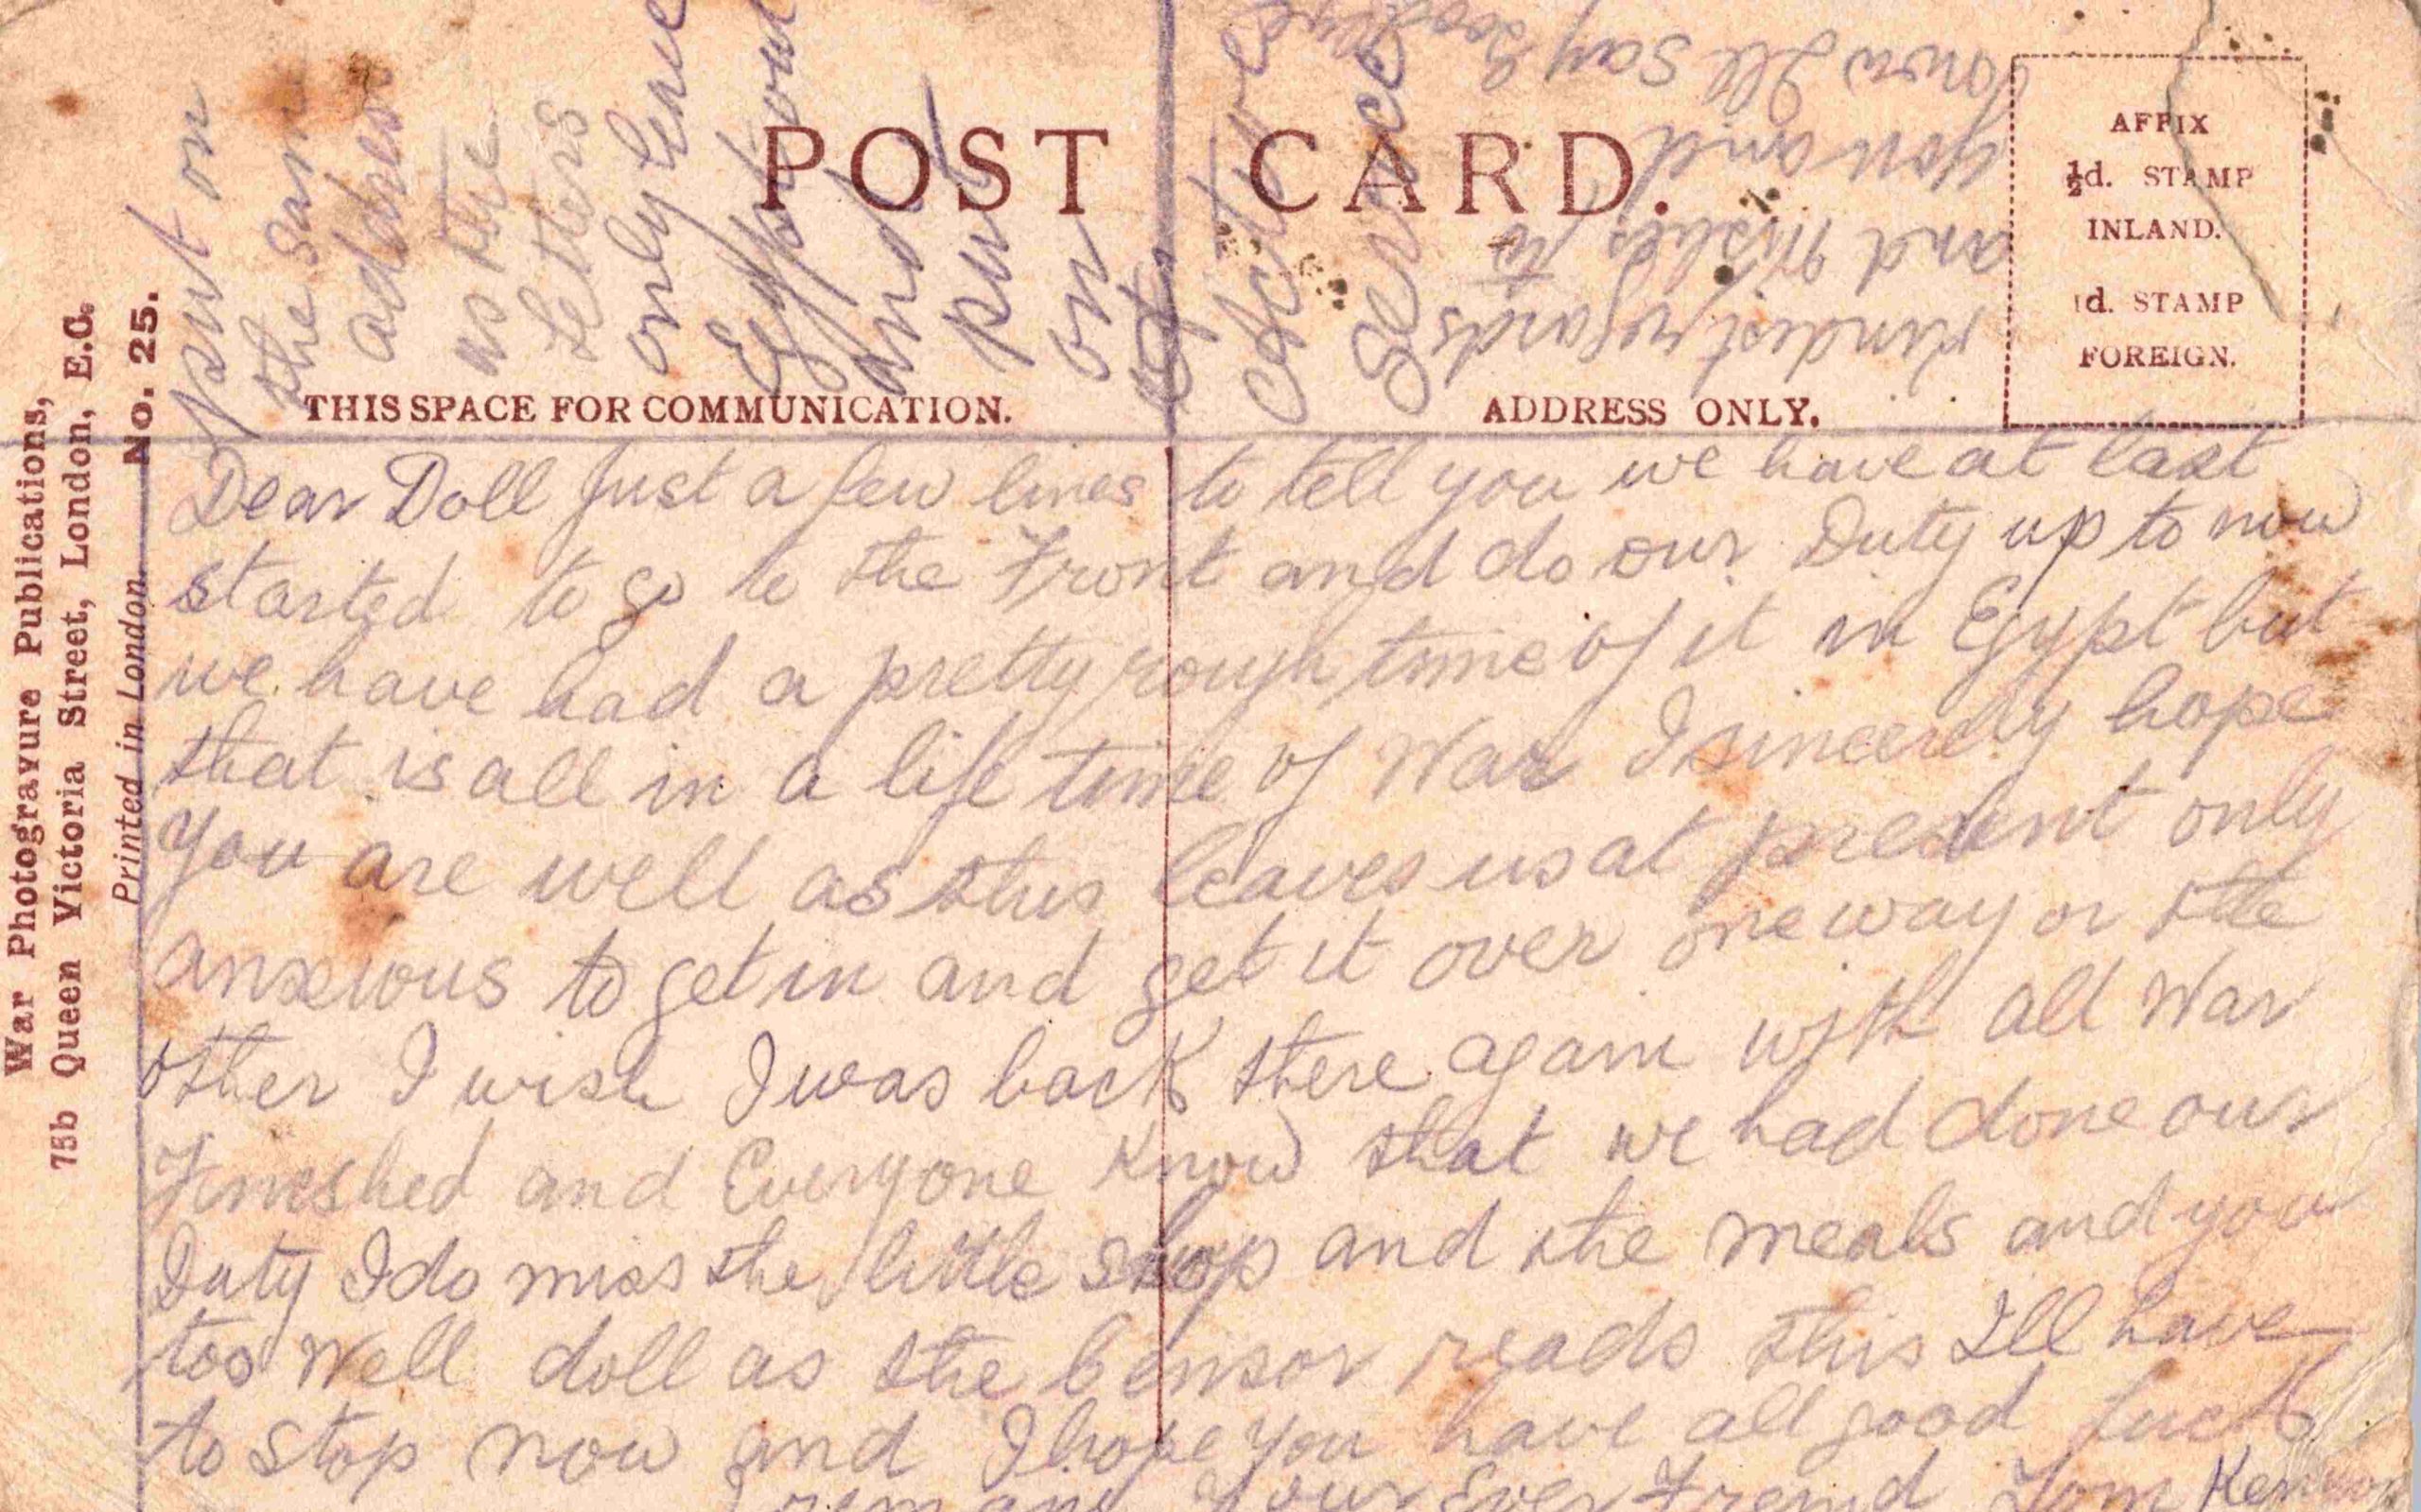 War Photogravure Publications,
75b Queen Victoria Street, London, E.C.
Printed in London. No. 25.
POST CARD.
THIS SPACE FOR COMMUNICATION.
ADDRESS ONLY.
AFFIX
½d. STAMP
INLAND.
1d. STAMP
FOREIGN.
Dear Doll Just a few lines to tell you we have at last
started to go to the Front and do our Duty up to now
we have had a pretty rough time of it in Egypt but
that is all in a life time of War I sincerely hope
you are well as this leaves us at present only
anxeious to get in and get it over one way or the
other I wish I was back there again with all War
Fineshed and Everyone Know that we had done our
Duty I do miss the little shop and the meals and you
too Well doll as the Censor reads this Ill have
to stop now and I hope you have all good luck
Your Ever Friend Tom
kindest regards
and Wishes to
you and
now Ill Say Goodbye
put on
the same
address
as the
letters
only leave
Egypt out
and
put
on
it
Active
Service